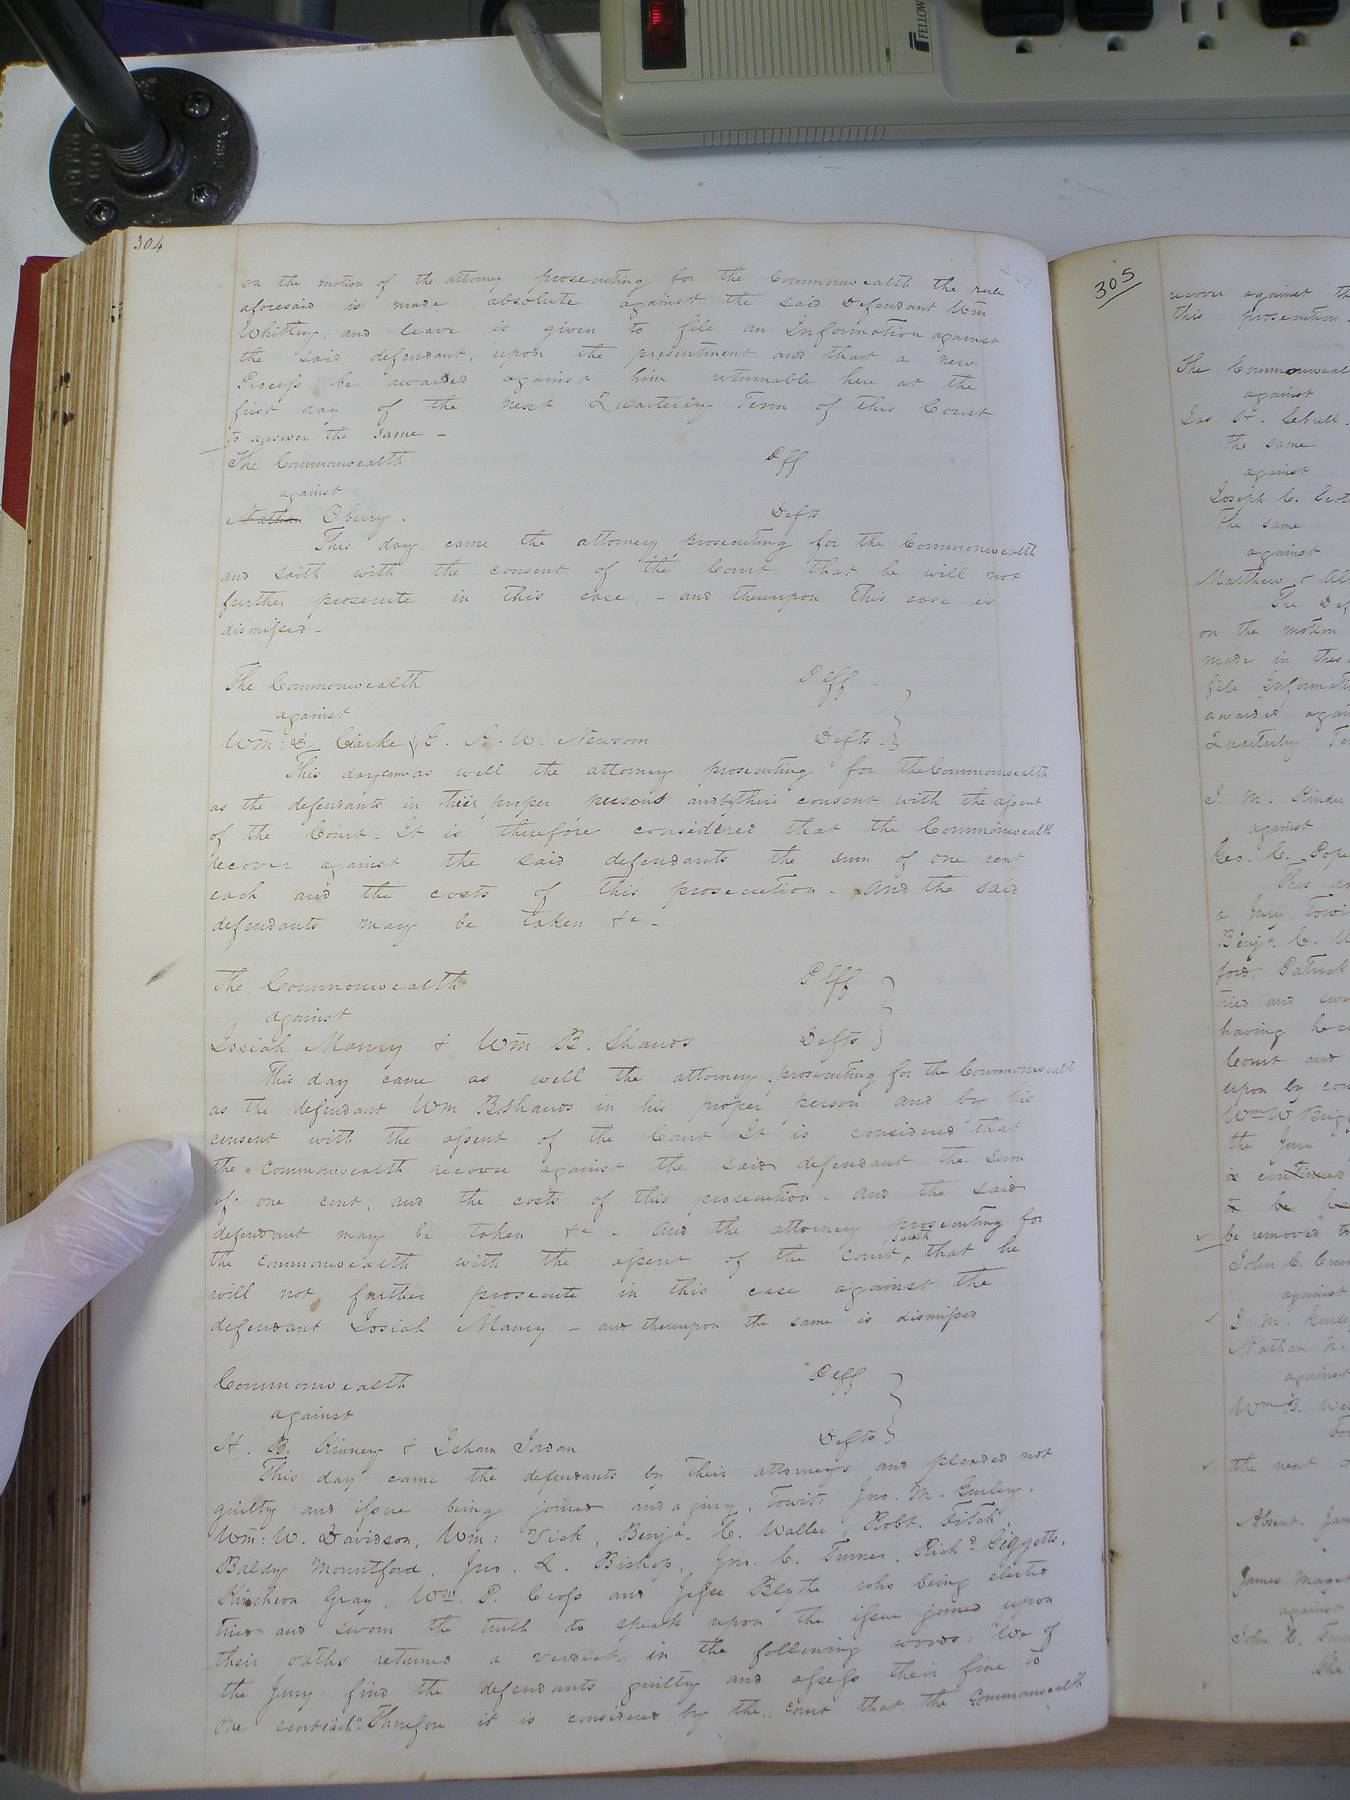 FELLOW
304
on the motion of the attorney prosecuting for the Commonwealth the rule
aforesaid is made absolute against the said Defendant Wm
Whitley, and leave is given to file an Information against
the said defendant, upon the presentment and that a new
Process be awarded against him returnable here at the
first day of the next Quarterly Term of this Court
to answer the same -
The Commonwealth Plff
against
Nathan Oberry. Defts
This day came the attorney prosecuting for the Commonwealth
and saith with the consent of the Court that he will not
further prosecute in this case - and thereupon this case is
dismissed -
The Commonwealth Plff -
against
Wm: D. Clarke & G. A. W. Newsom Defts -
This day came as well the attorney prosecuting for the Commonwealth
as the defendants in their proper persons and by their consent with the assent
of the Court - It is therefore considered that the Commonwealth
recover against the said defendants the sum of one cent
each and the costs of this prosecution - And the said
defendants may be taken &c -
The Commonwealth Plff
against
Josiah Manry & Wm B. Shands Defts
This day came as well the attorney prosecuting for the Commonwealth
as the defendant Wm B Shands in his proper person and by his
consent with the assent of the Court It is considered that
the Commonwealth recover against the said defendant the sum
of one cent, and the costs of this prosecution - and the said
defendant may be taken &c - And the attorney prosecuting for
the commonwealth with the assent of the court, saith that he
will not further prosecute in this case against the
defendant Josiah Manry - and thereupon the same is dismissed
Commonwealth Plff
against
H. B. Kinney & Isham Jordan Defts
This day came the defendants by their attorneys and pleaded not
guilty and issue being joined and a jury, towit: Jno. M. Gurley,
Wm: W. Davidson, Wm: Vick, Benja. C. Waller, Robt. Fitch,
Baldy Mountford, Jno. L. Bishop, Jno. C. Turner, Richd Giggetts,
Kincheon Gray, Wm. P. Cross and Jesse Blythe who being elected
tried and sworn the truth to speak upon the issue joined upon
their oaths returned a verdict in the following words: "We of
the Jury find the defendants guilty and assess their fine to
one cent each" Therefore it is considered by the court that the Commonwealth
305
recover against
this prosecution
The
against
the same
against
Joseph C.
The same
against
Matthew &
The
on the motion
made in
file
awarded
Quarterly
J. M. Kinder
against
Geo. C. Pope
This
a Jury,
Benja. C.
Patrick
tried and
having
Court and
upon by
Wm W
the jury
is continued
to be
be removed to
John C.
against
J. M.
Nathan
against
Wm B.
the next
Absent.
James
against
John C.
The